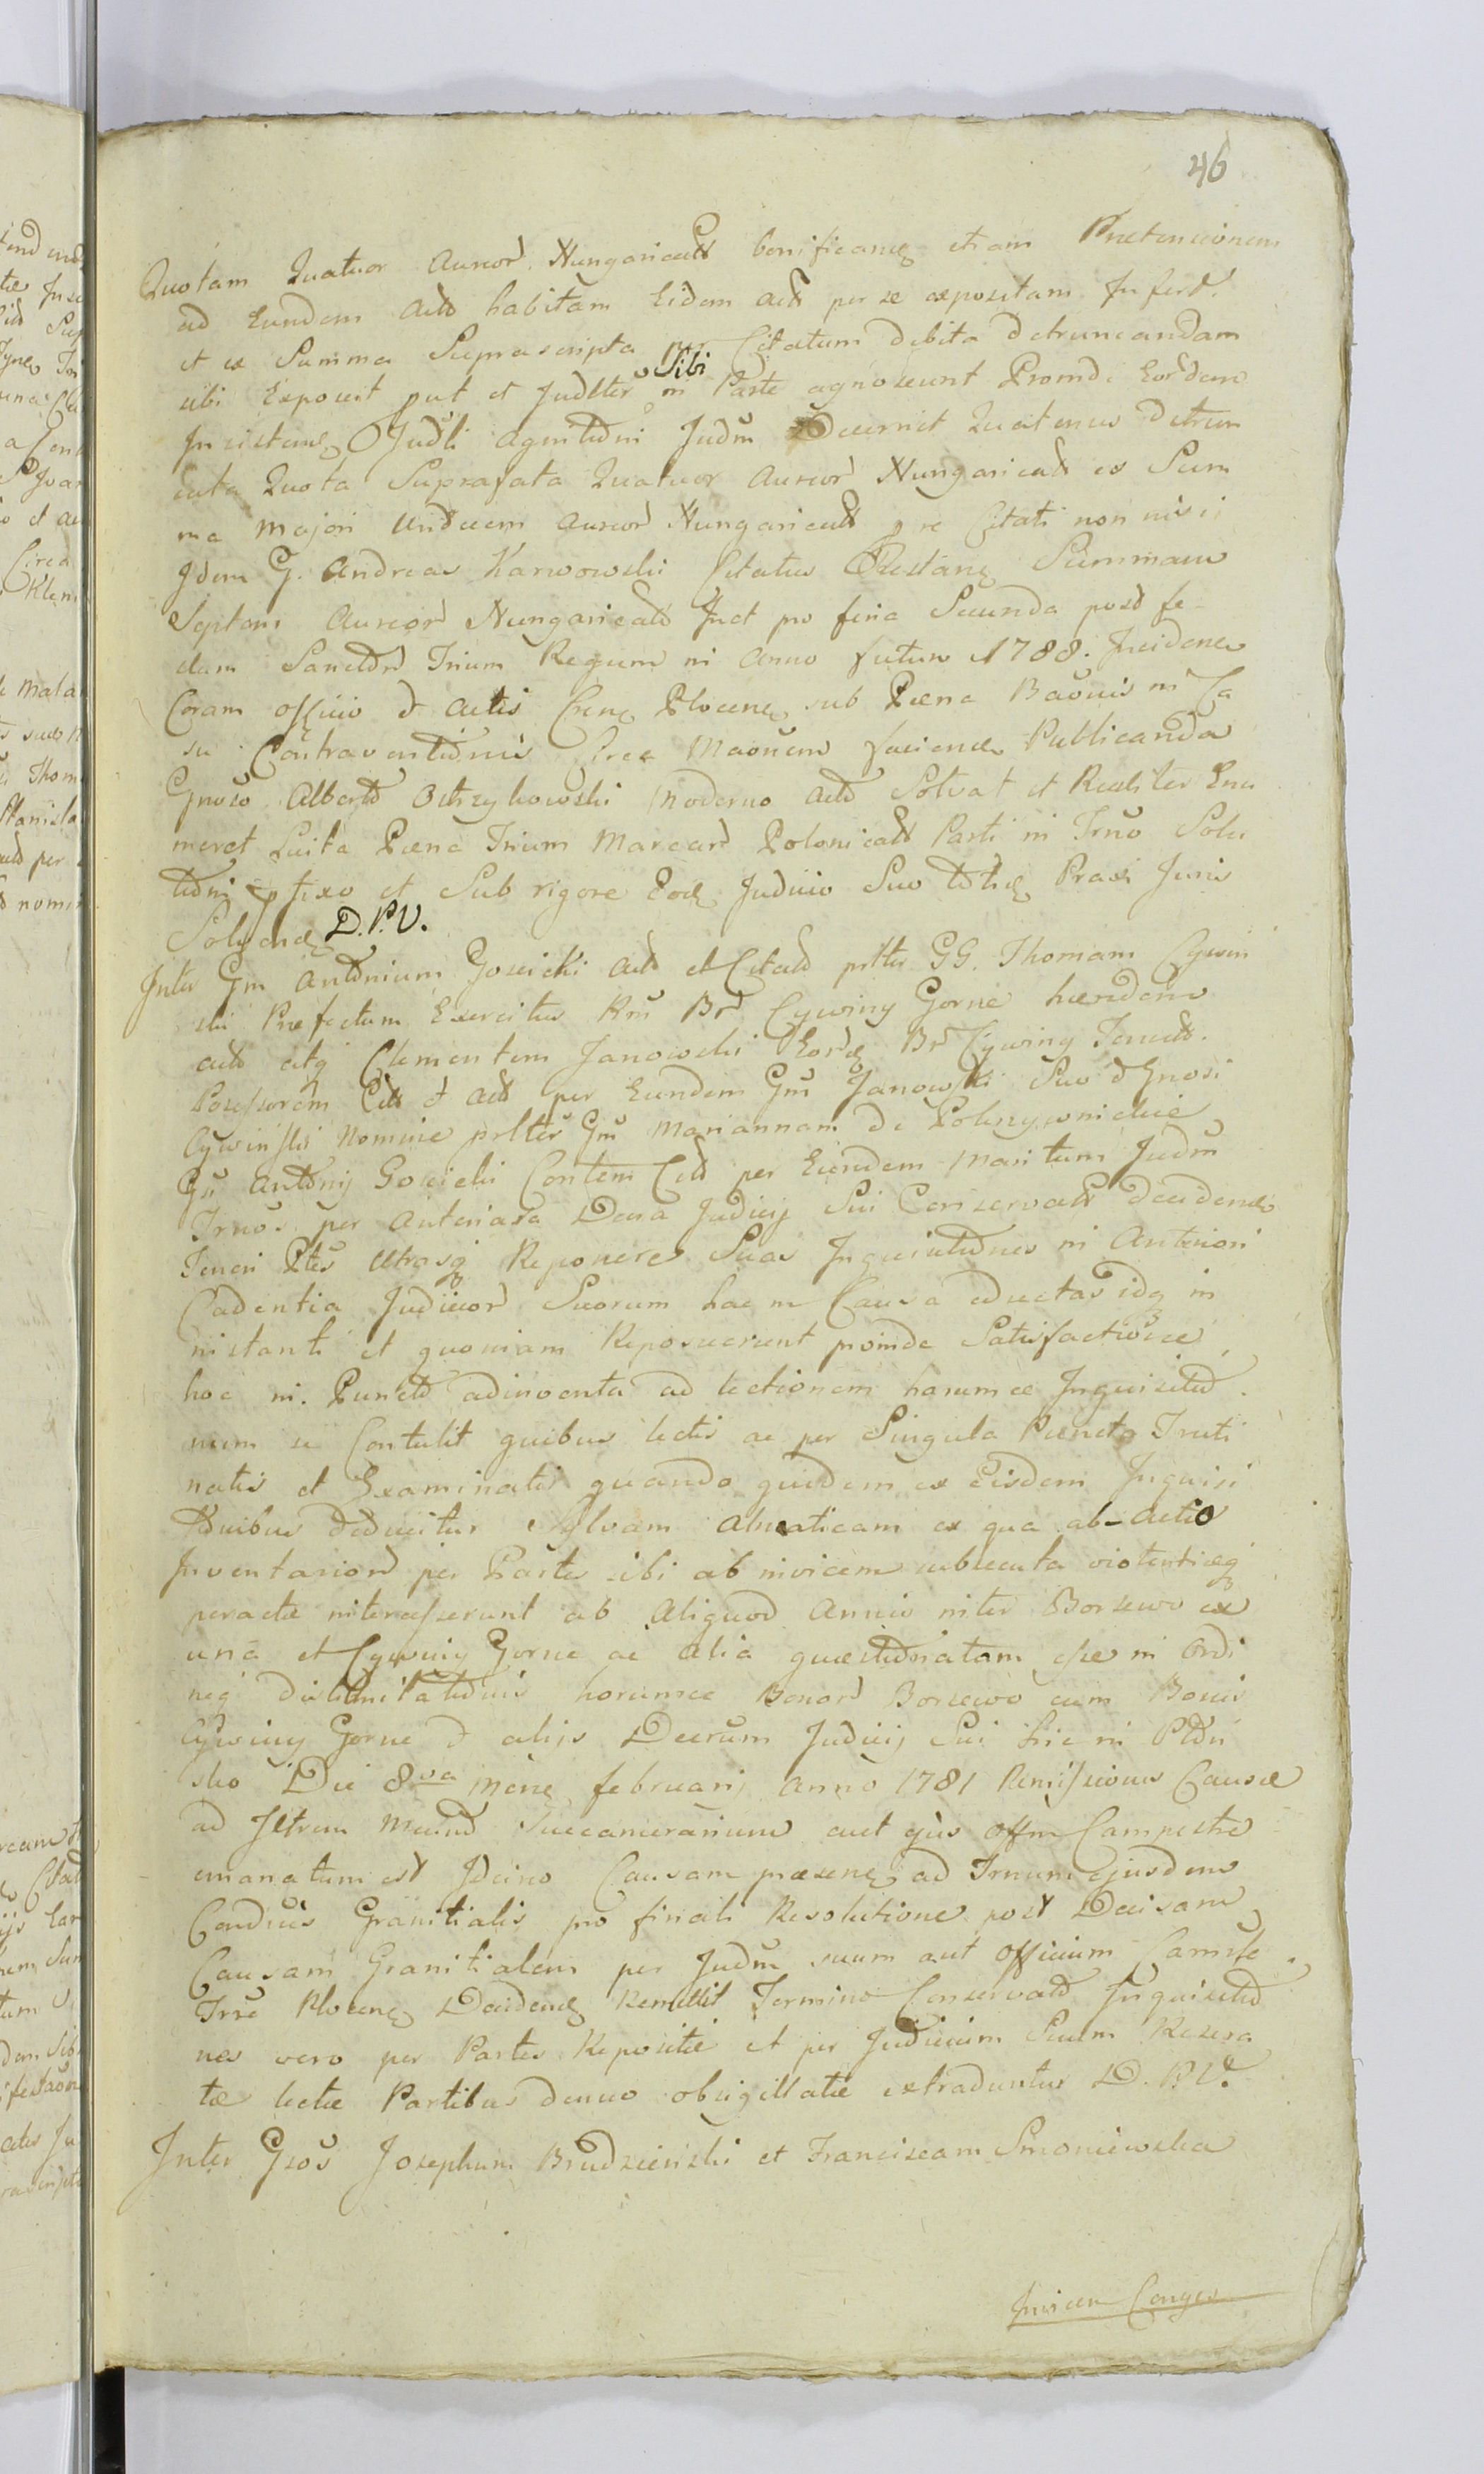 46
Quotam Quatuor Aureor Hungarical bonificanq etiam Praetensionem
ad Eundem Actt habitam Eidem Actt per se expositam Infert.
et ex Summa Suprascripta per Citatum debita detruncandam
sibi Exposcit put et Judlter Sibi in Parte agnoscunt Proinde Eordem
Insistend Judli agnitioni Judm Decernit Quatenus detrun
cata Quota Suprafata Quatuor Aureor Hungaricall ex Sum
ma Majori Undecem Aureor Hungaricall p re Citati non nisi
Idem G. Andreas Karwowski Citatus Restanq Summam
Septem Aureor Hungaricall Inct pro feria Secunda post fe
stum Sanctor Trium Regum in Anno futuro 1788. Inciden
Coram officio & Actis Cren Plocen sub Paena Baonis in Ca
su Contraventionis Circa Maonem faciend Publicanda
Gnoso Alberto Ostrzykowski moderno Actt Solvat et Realiter Enu
meret Luita Paena Trium Marcar Polonicall Parti in Trno Solu
tioni pfixo et Sub rigore Eod Judicio Suo Praxi Juris
Solvend D.P.V.
Inter Gm Antonium Gosicki Actt et Citatt pltter GG. Thomam Cywin
ski Praefectum Exercitus Rni Br Cywiny Gorne haeredem
actt atq Clementem Janowski Eord Br Cywiny Tenutt.
Possessorem Citt & Actt per Eundem Gm Janowski Suo & Gnosi
Cywinski Nomine pltter Gm Mariannam de Pokrzywnickie
Gn Antonij Gosicki Contem Citt per Eundem Maritum Judm
Trnos per Anteriora Dcra Judicij Sui Conservatt decidendo
Teneri Ptes Utrasq Reponere Suas Inquisitiones in Anteriori
Cadentia Judicior Suorum hac in Causa eductas idq in
instanti et quoniam Reposuerunt proinde Satisfactione
hoc in Puncto adinventa ad lectionem harumce Inquisitio
num se Contulit quibus lectis ac per Singula Puncta Truti
natis et Examinatis quando quidem ex Eisdem Inquisi
tionibus deducitur Sylvam Alneaticam ex qua ab Actio
Inventarior per Partes sibi ab invicem subsecuta violentiaeq
peractae intercesserunt ab Aliquod Annis inter Borzewo ex
una et Cywiny Gorne ac alia quaestionatam esse in Ordi
neq dislimitationis horumce Bonor Borzewo cum Bonis
Cywiny Gorne & alijs Decrum Judicij Sui hic in Ploń
sko Die 8va Mens februarij Anno 1781 Remissionis Causae
ad Iltrem Succamerarium aut ejus Offm Campestre
emanatum est Idcirco Causam praesene ad Trnum Ejusdem
Condnis Granitialis pro finali Resolutione post Decisam
Causam Granitialem per Judm suum aut Officium Camrle
Trre Plocen Decidend Remittit Termino Conservato Inquisitio
nes vero per Partes Repositae et per Judicium Suum Resera
tae lectae Partibus denuo obsigillatae extraduntur D.P.V.
Inter Gsos Josephum Brudzienski et Franciscam Smoniewska
Invicem Conges